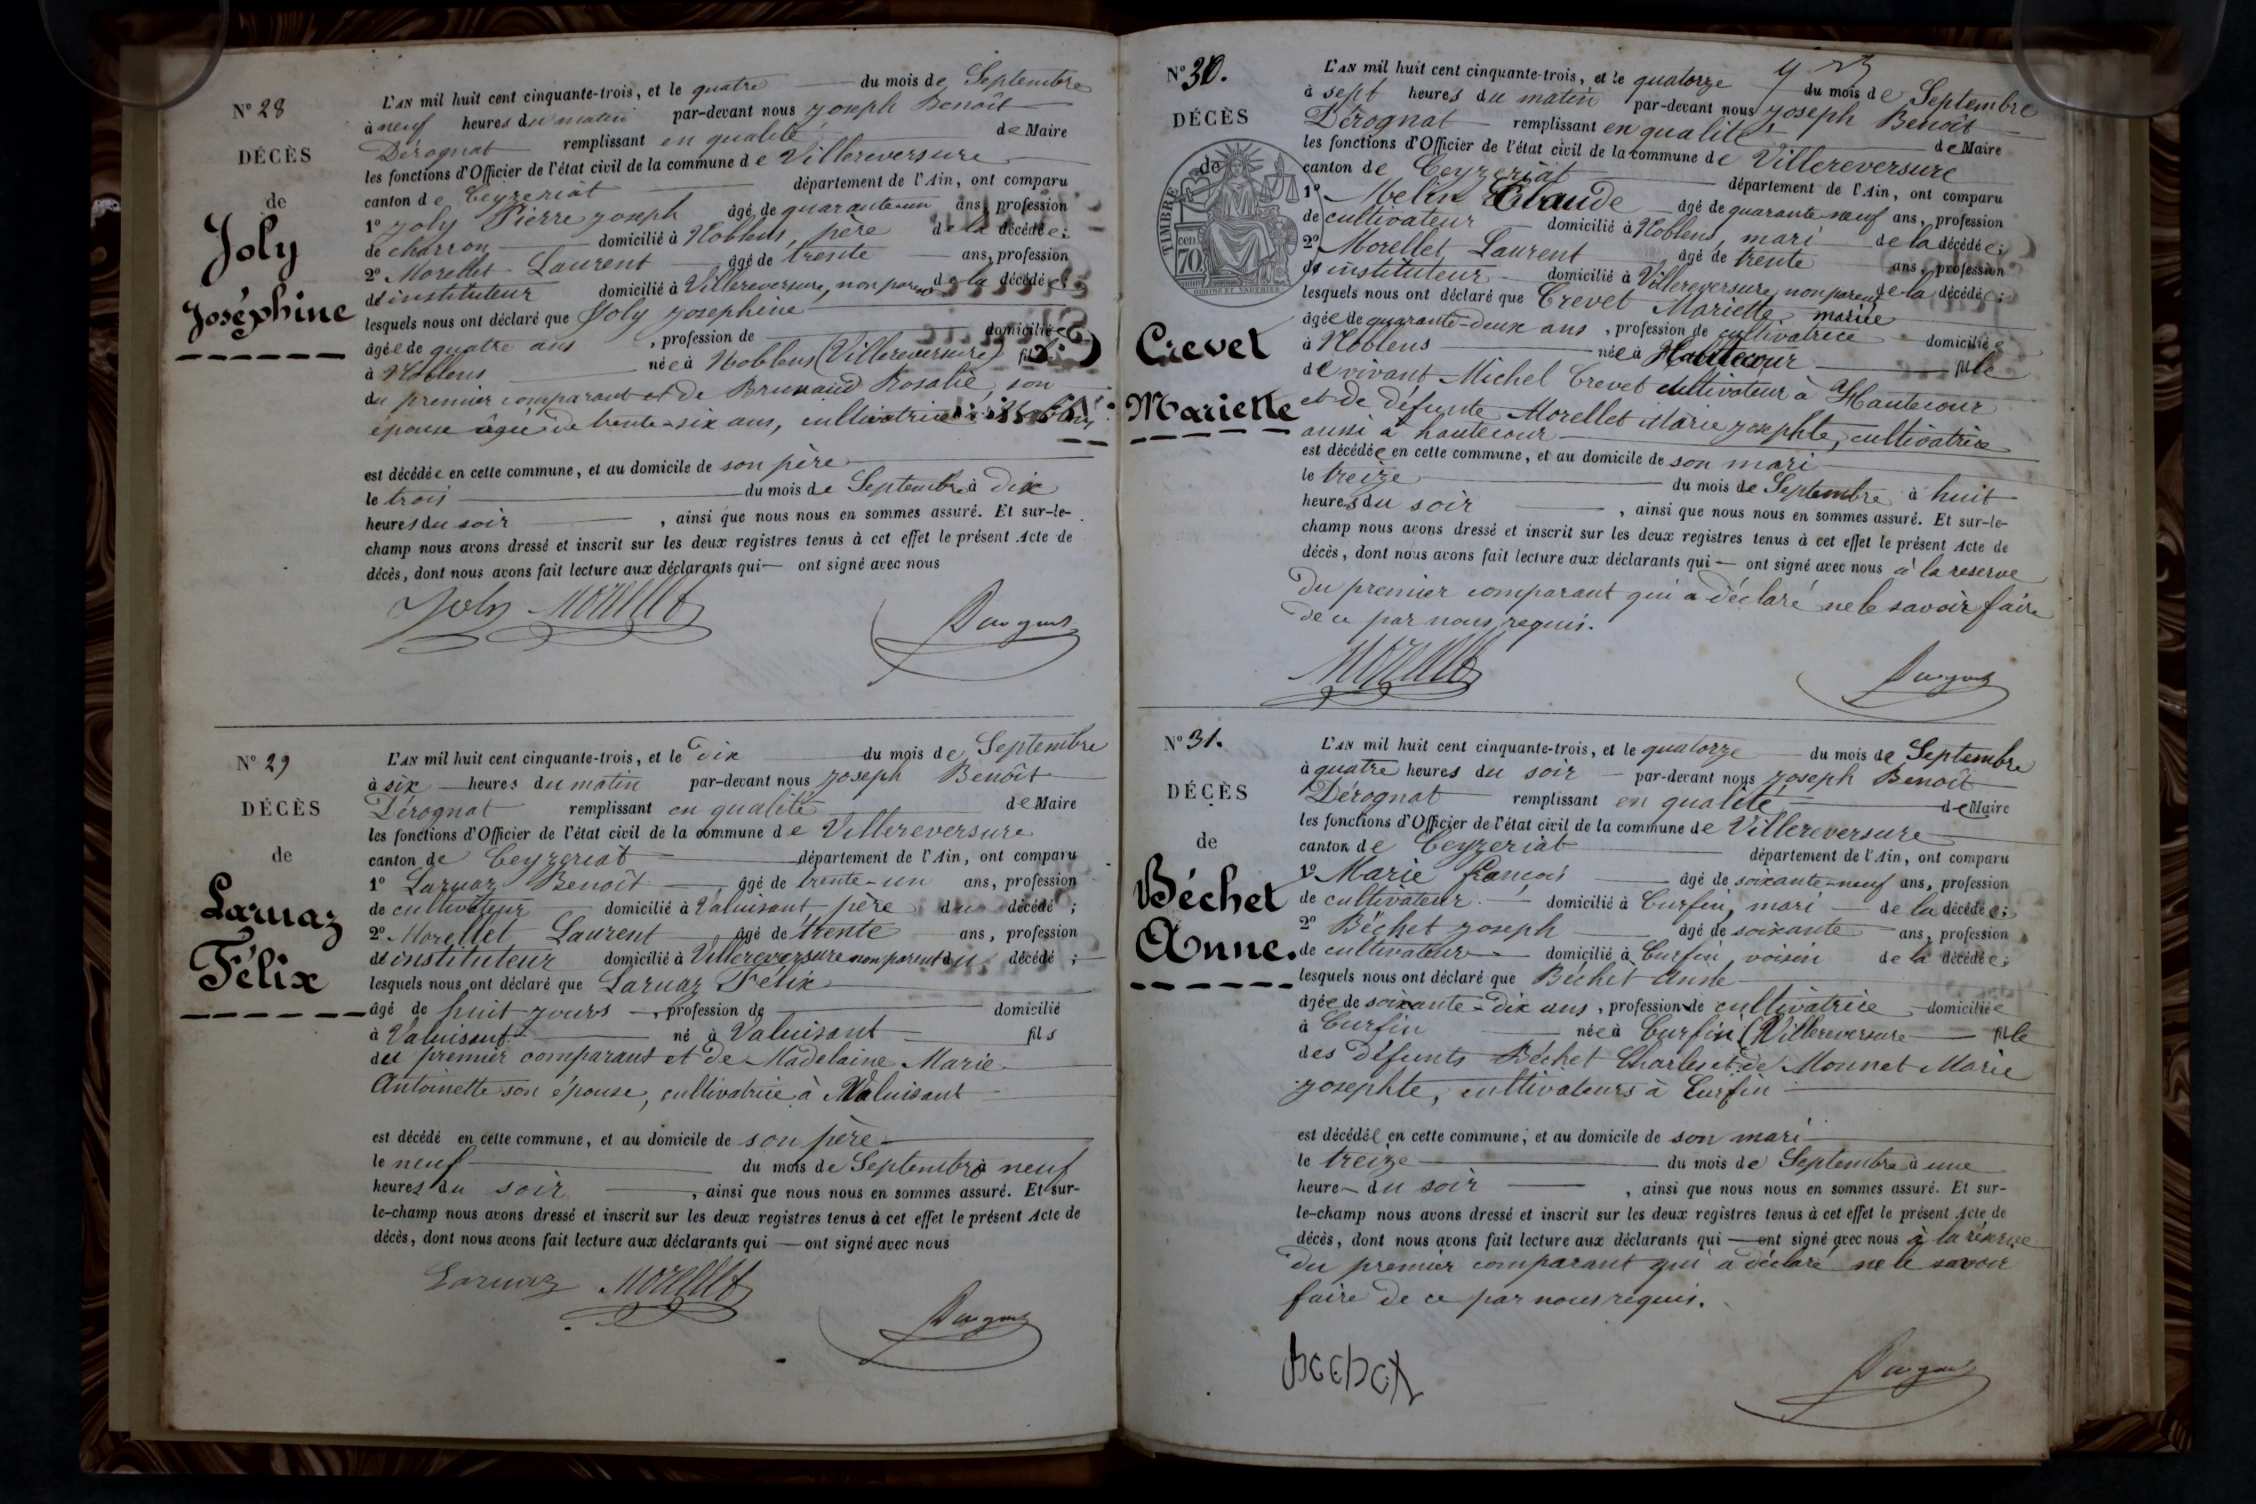 N° 28
DÉCÈS
de
Joly
Joséphine
L'AN mil huit cent cinquante-trois, et le quatre du mois de Septembre
à neuf heures du matin par-devant nous Joseph Benoît
Dérognat remplissant en qualité de Maire
les fonctions d'Officier de l'état civil de la commune de Villereversure
canton de Ceyzeriat département de l'Ain, ont comparu
1° Joly Pierre Joseph âgé de quarante-un ans, profession
de charron domicilié à Noblens, père de la décédée;
2° Morellet Laurent âgé de trente ans, profession
d'instituteur domicilié à Villereversure, non parent de la décédée;
lesquels nous ont déclaré que Joly Josephine
âgée de quatre ans, profession de domiciliée
à Noblens née à Noblens (Villereversure) fille
du premier comparant et de Brunaud Rosalie, son
épouse âgée de trente-six ans, cultivatrice à Noblens
est décédée en cette commune, et au domicile de son père
le trois du mois de Septembre à dix
heures du soir, ainsi que nous nous en sommes assuré. Et sur-le-
champ nous avons dressé et inscrit sur les deux registres tenus à cet effet le présent Acte de
décès, dont nous avons fait lecture aux déclarants qui — ont signé avec nous
Joly Morellet
N° 29
DÉCÈS
de
Laruaz
Félix
L'AN mil huit cent cinquante-trois, et le dix du mois de Septembre
à six heures du matin par-devant nous Joseph Benoît
Dérognat remplissant en qualité de Maire
les fonctions d'Officier de l'état civil de la commune de Villereversure
canton de Ceyzeriat département de l'Ain, ont comparu
1° Laruaz Benoît âgé de trente-un ans, profession
de cultivateur domicilié à Valuisant, père du décédé;
2° Morellet Laurent âgé de trente ans, profession
d'instituteur domicilié à Villereversure non parent du décédé;
lesquels nous ont déclaré que Laruaz Félix
âgé de huit jours, profession de domicilié
à Valuisant né à Valuisant fils
du premier comparant et de Madelaine Marie
Antoinette son épouse, cultivatrice à Valuisant
est décédé en cette commune, et au domicile de son père
le neuf du mois de Septembre à neuf
heures du soir, ainsi que nous nous en sommes assuré. Et sur-
le-champ nous avons dressé et inscrit sur les deux registres tenus à cet effet le présent Acte de
décès, dont nous avons fait lecture aux déclarants qui — ont signé avec nous
Laruaz Morellet
N° 30.
DÉCÈS
de
TIMBRE
cen
70
Crevet
Mariette
L'AN mil huit cent cinquante-trois, et le quatorze du mois de Septembre
à sept heures du matin par-devant nous Joseph Benoît
Dérognat remplissant en qualité de Maire
les fonctions d'Officier de l'état civil de la commune de Villereversure
canton de Ceyzeriat département de l'Ain, ont comparu
1° Melin Claude âgé de quarante-neuf ans, profession
de cultivateur domicilié à Noblens, mari de la décédée;
2° Morellet Laurent âgé de trente ans, profession
d'instituteur domicilié à Villereversure, non parent de la décédée;
lesquels nous ont déclaré que Crevet Mariette, mariée
âgée de quarante-deux ans, profession de cultivatrice domiciliée
à Noblens née à Hautecour fille
de vivant Michel Crevet cultivateur à Hautecour
et de défunte Morellet Marie Josephte, cultivatrice
aussi à hautecour
est décédée en cette commune, et au domicile de son mari
le treize du mois de Septembre à huit
heures du soir, ainsi que nous nous en sommes assuré. Et sur-le-
champ nous avons dressé et inscrit sur les deux registres tenus à cet effet le présent Acte de
décès, dont nous avons fait lecture aux déclarants qui — ont signé avec nous à la reserve
du premier comparant qui a déclaré ne le savoir faire
de ce par nous requis.
Morellet
N° 31.
DÉCÈS
de
Béchet
Anne.
L'AN mil huit cent cinquante-trois, et le quatorze du mois de Septembre
à quatre heures du soir par-devant nous Joseph Benoît
Dérognat remplissant en qualité de Maire
les fonctions d'Officier de l'état civil de la commune de Villereversure
canton de Ceyzeriat département de l'Ain, ont comparu
1° Marie François âgé de soixante-neuf ans, profession
de cultivateur domicilié à Curfin, mari de la décédée;
2° Béchet Joseph âgé de soixante ans, profession
de cultivateur domicilié à Curfin, voisin de la décédée;
lesquels nous ont déclaré que Béchet Anne
âgée de soixante-dix ans, profession de cultivatrice domiciliée
à Curfin née à Curfin (Villereversure fille
des défunts Béchet Charles et de Monnet Marie
Josephte, cultivateurs à Curfin
est décédée en cette commune, et au domicile de son mari
le treize du mois de Septembre à une
heure du soir, ainsi que nous nous en sommes assuré. Et sur-
le-champ nous avons dressé et inscrit sur les deux registres tenus à cet effet le présent Acte de
décès, dont nous avons fait lecture aux déclarants qui — ont signé avec nous à la réserve
du premier comparant qui a déclaré ne le savoir
faire de ce par nous requis.
bechet